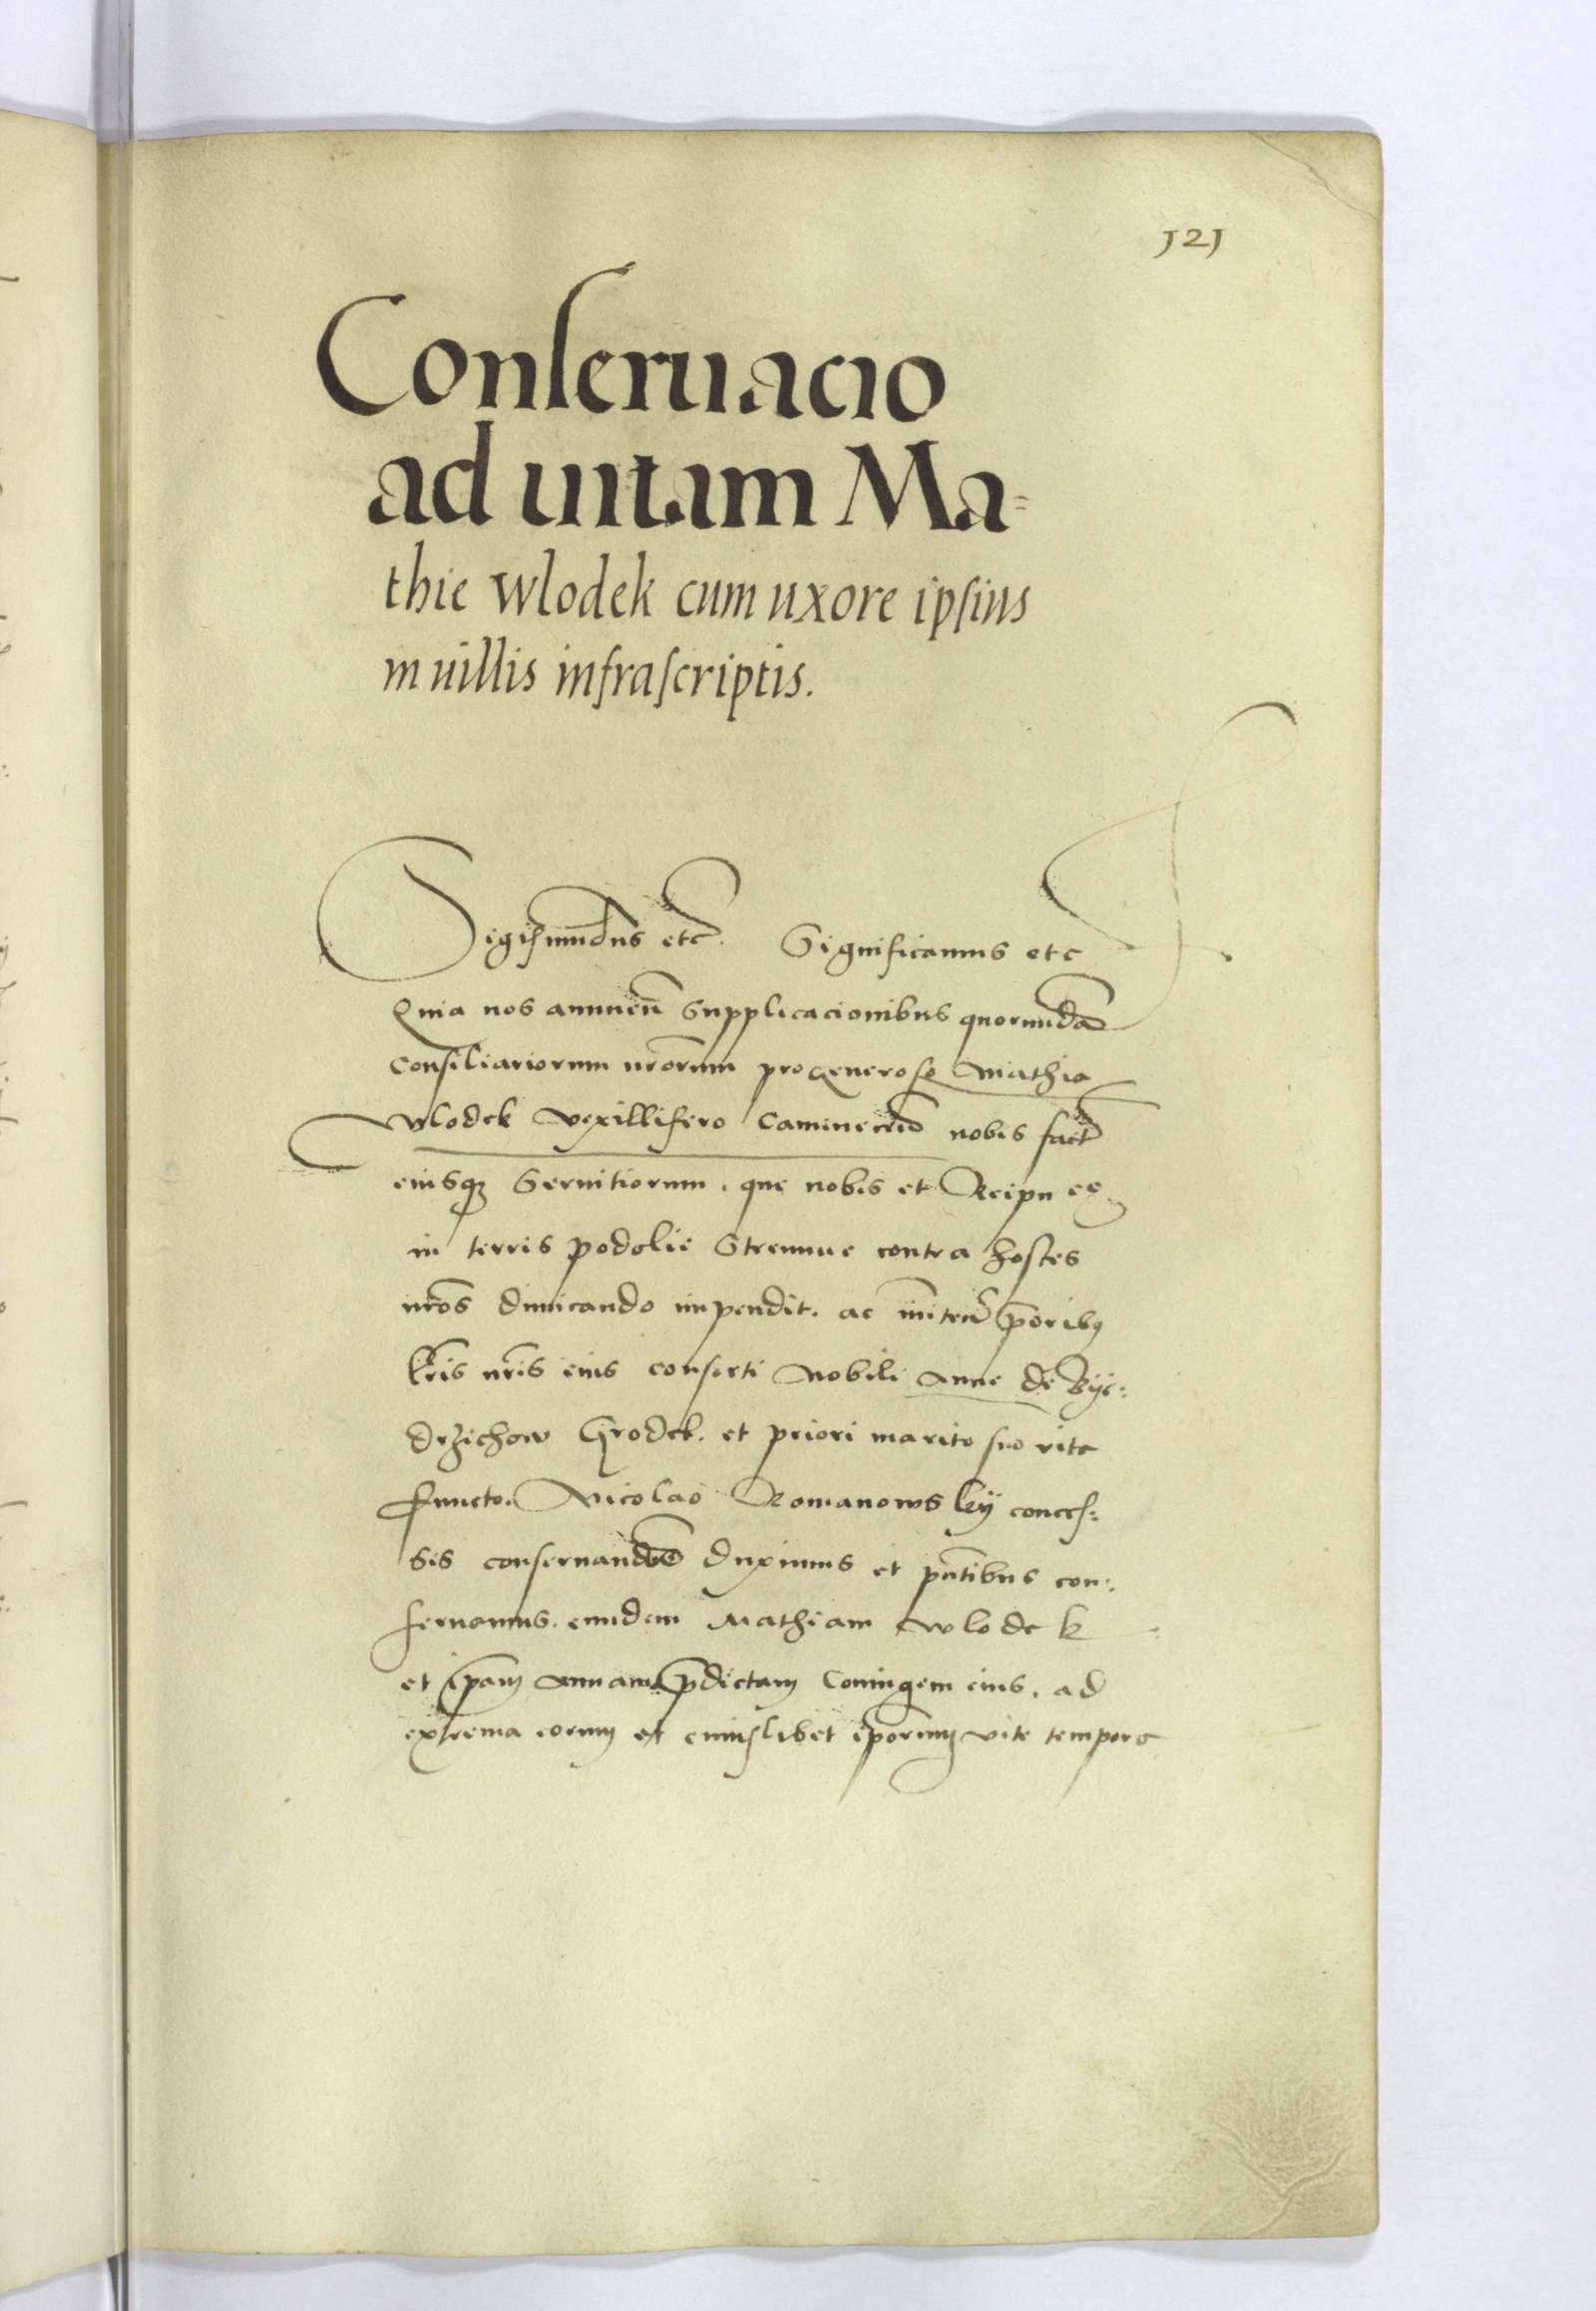 121
Conseruacio
ad uitam Ma=
thie Wlodek cum uxore ipsius
in uillis infrascriptis.
Sigismundus etc. Significamus etc
Quia nos annuen supplicacionibus quorundā
consiliariorum nrorum pro generoso Mathia
Wlodek vexillifero Camenecen nobis fact
eiusq seruitiorum, que nobis et Reipu
in terris podolie strennue contra hostes
nros dimicando impendit. ac prioribus
lris nris eius consorti Nobili Anne de Byе:
drzichow Grodek. et priori marito suo vita
functo. Nicolao Romanowsky conces:
sis conseruandū duximus et pntibus con:
seruamus. eundem Mathiam Wlodek
et ipam Annam pdictam Coniugem eius. ad
extrema eorum et cuiuslibet ipsorum vite tempora